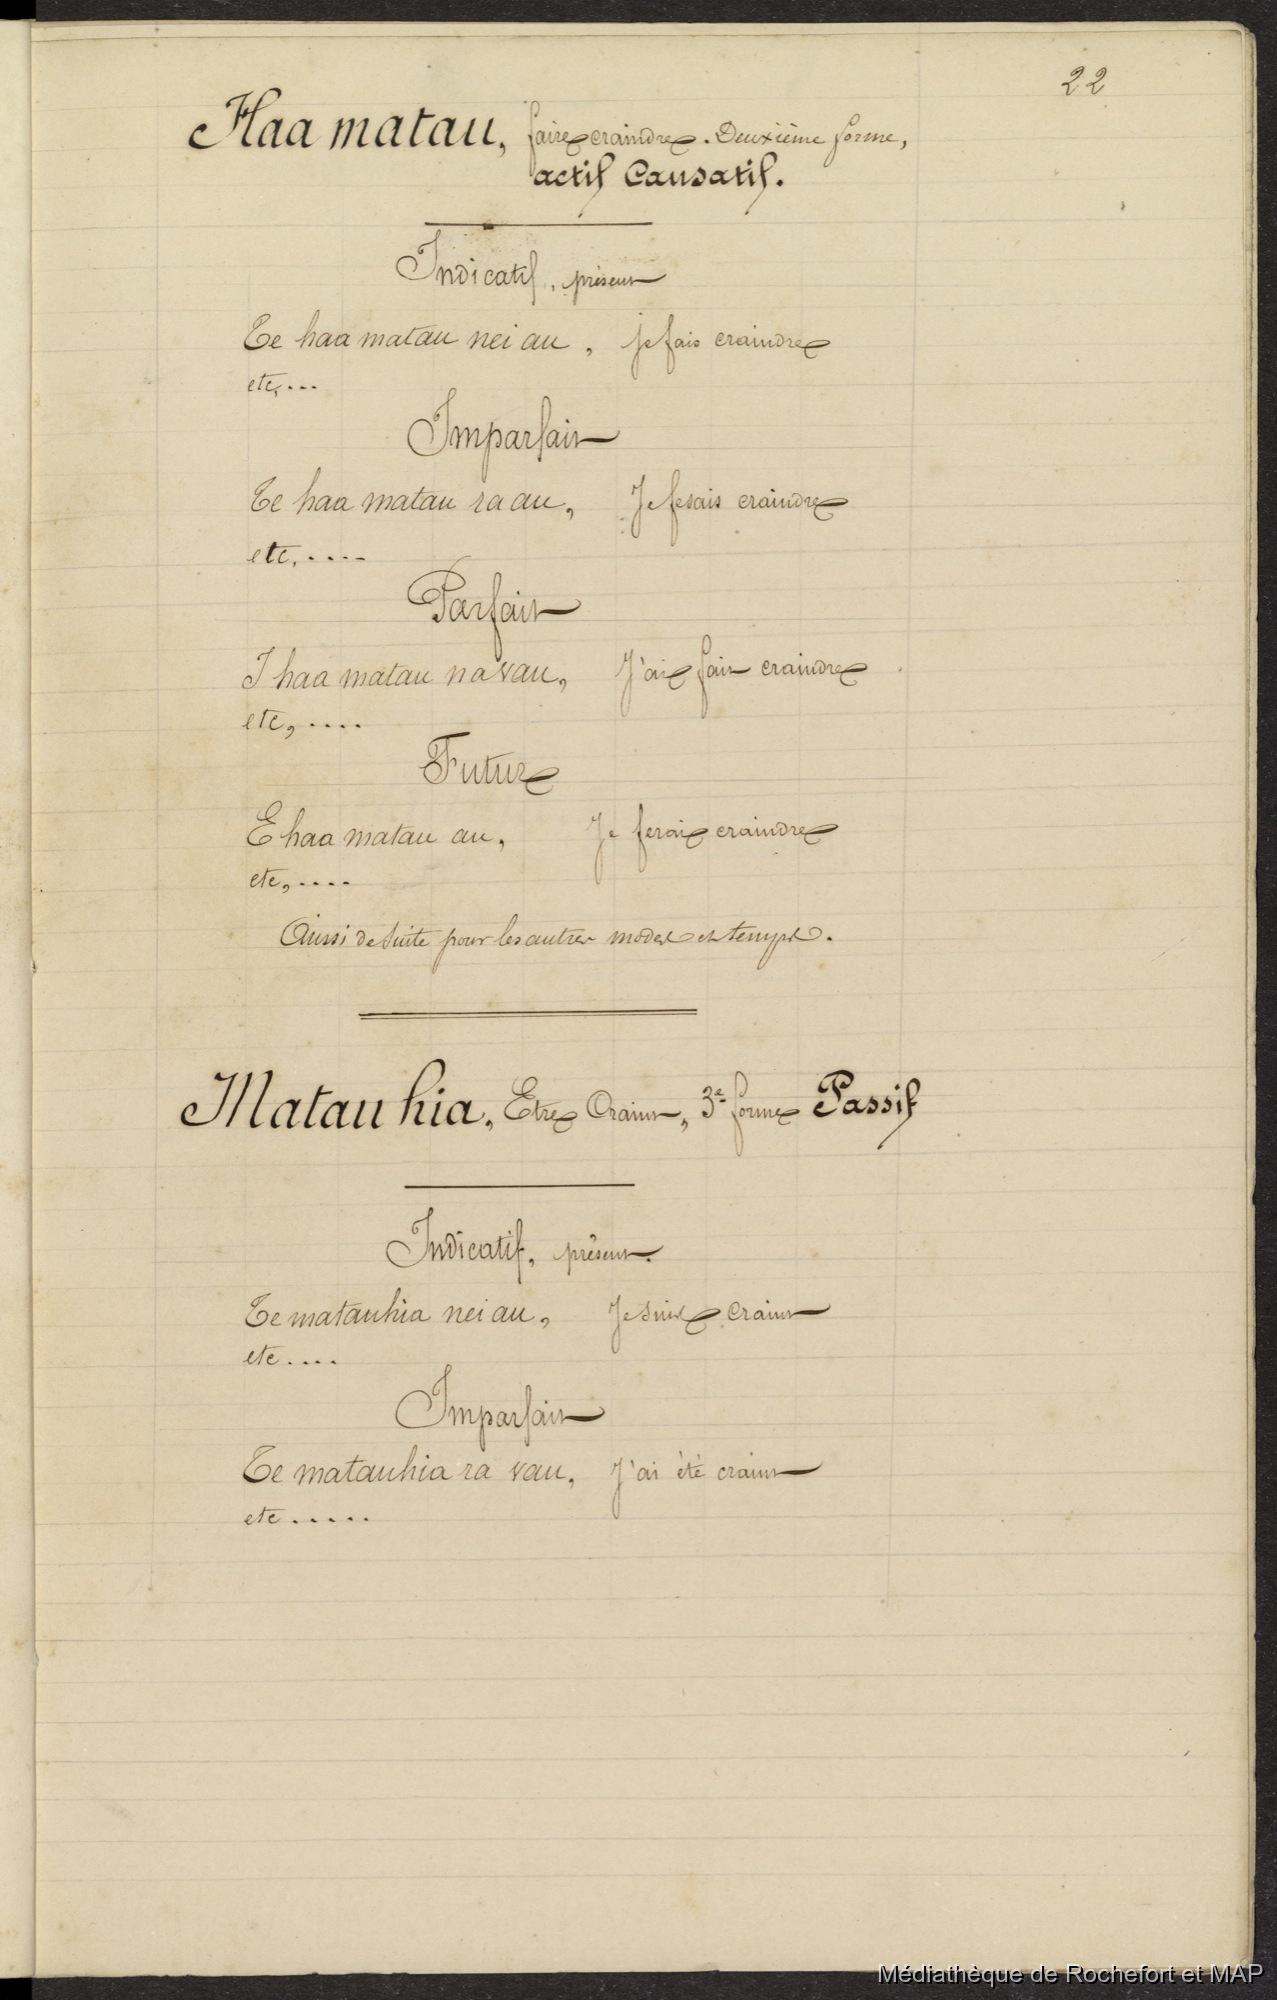 22
Haa matau, faire craindre. Deuxième forme,
actif Causatif.
Indicatif, présent
Te haa matau nei au, je fais craindre
etc,...
Imparfait
Te haa matau ra au, Je fesais craindre
etc,....
Parfait
I haa matau na vau, J'ai fait craindre
etc,....
Futur
E haa matau au, Je ferai craindre
etc,....
Ainsi de Suite pour les autres modes et temps.
Matau hia, Etre Craint, 3e forme Passif
Indicatif, présent.
Te matauhia nei au, Je Suis Craint
etc....
Imparfait
Te matauhia ra vau, J'ai été craint
etc.....
Médiathèque de Rochefort et MAP